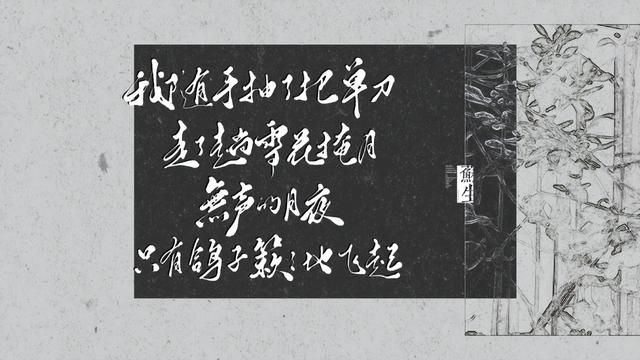 我随手抽了把单刀
走了趟雪花掩月
無声的月夜
只有鸽子簌簌地飞起
蘇生